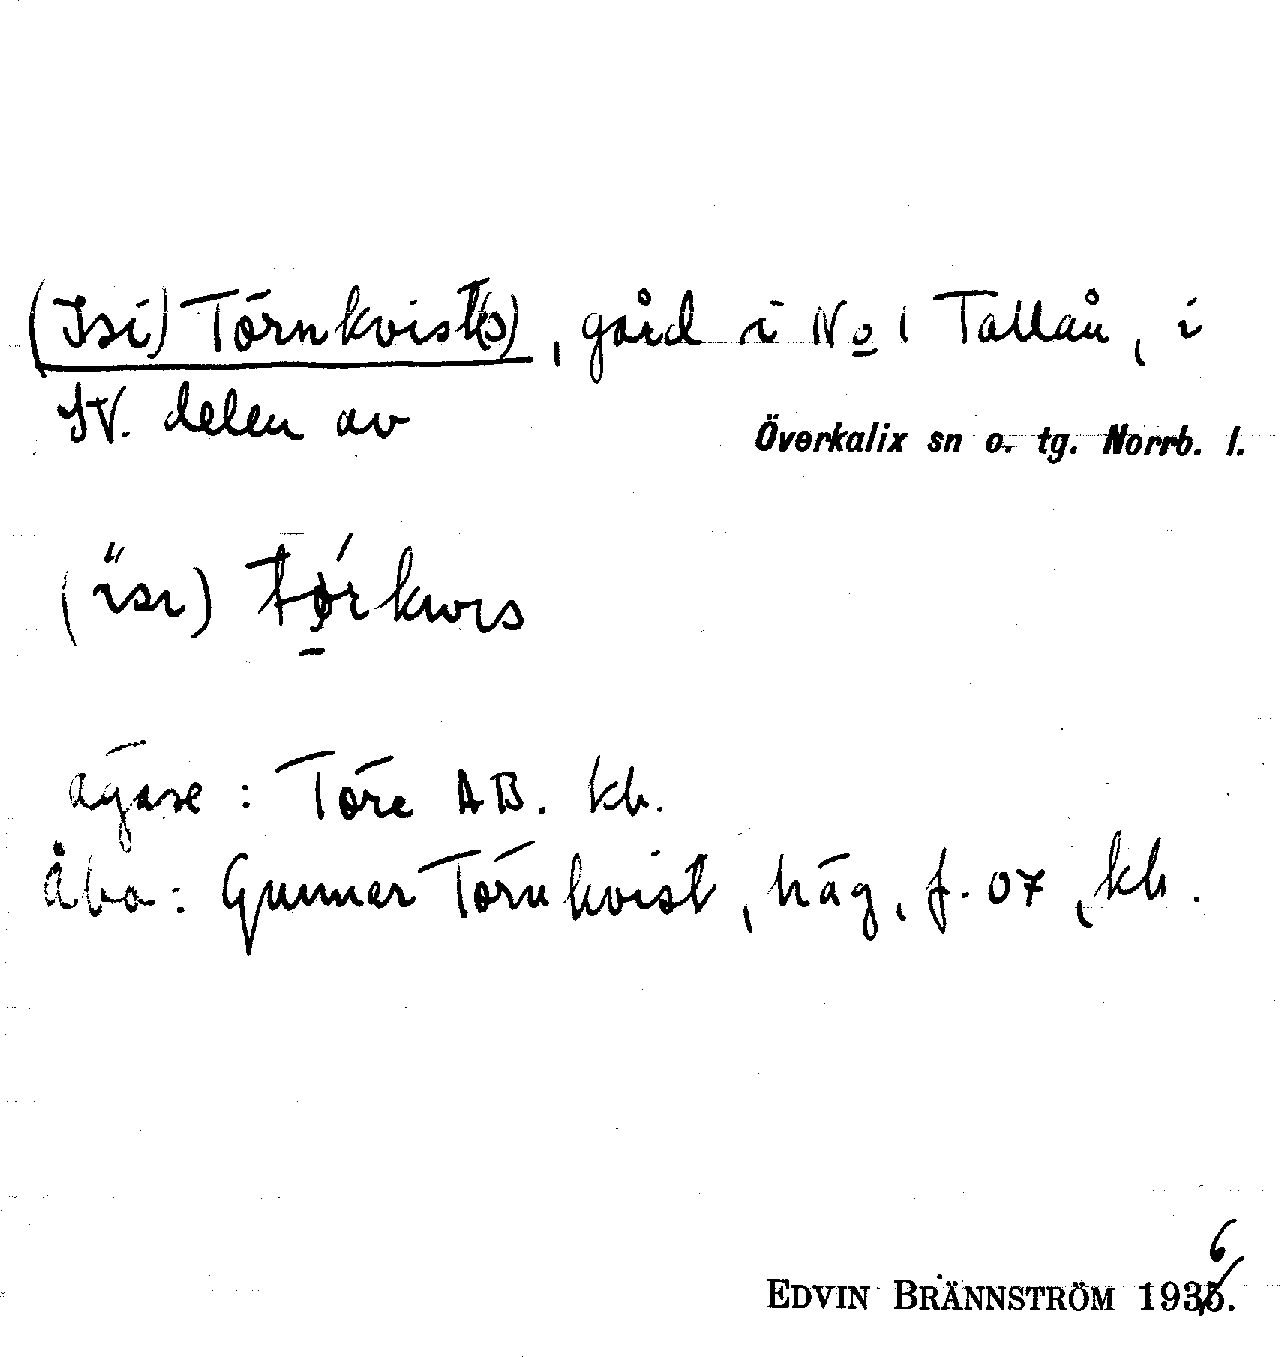 (Isi) Törnkvist(s), gård i No 1 Tallån, i
SV. delen av
Överkalix sn o. tg. Norrb. l.
(ïsı)
ägare: Töre AB. kb.
åbo: Gunnar Törnkvist, häg, f. 07, kb.
6
EDVIN BRÄNNSTRÖM 1935.